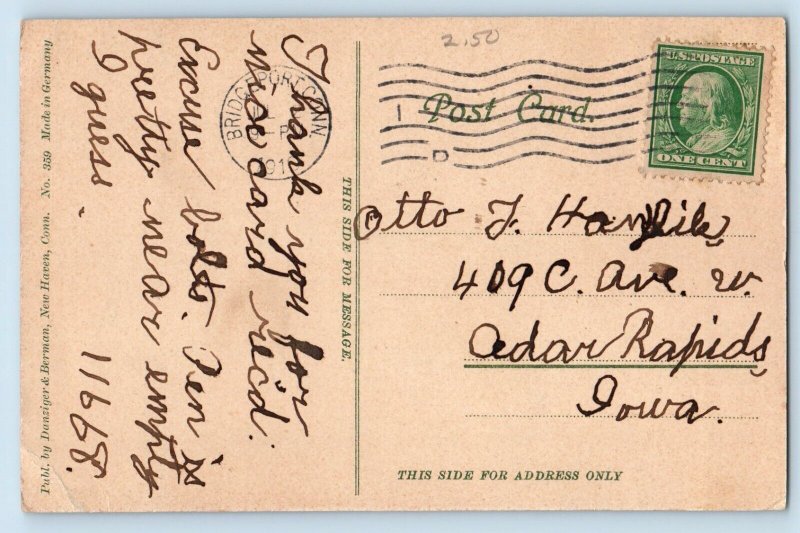 Publ. by Danziger & Berman, New Haven, Conn. No. 359 Made in Germany
Thank you for
nice card rec'd.
Excuse bolts. Pen is
pretty near empty
I guess.
11668.
THIS SIDE FOR MESSAGE.
BRIDGEPORT CONN.
2.50
Post Card.
U.S. POSTAGE
ONE CENT
Otto F.
409 C. Ave. W.
Cedar Rapids,
Iowa.
THIS SIDE FOR ADDRESS ONLY